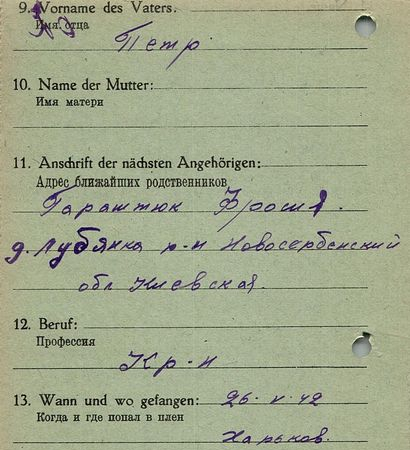 9. Vorname des Vaters.
Имя отца
Петр
10. Name der Mutter:
Имя матери
11. Anschrift der nächsten Angehörigen:
Адрес ближайших родственников
Гараштюк Фрося.
д. Лубянка р-н Новосербенский
обл Киевская.
12. Beruf:
Профессия
Кр-н
13. Wann und wo gefangen: 26-V-42
Когда и где попал в плен
Харьков.